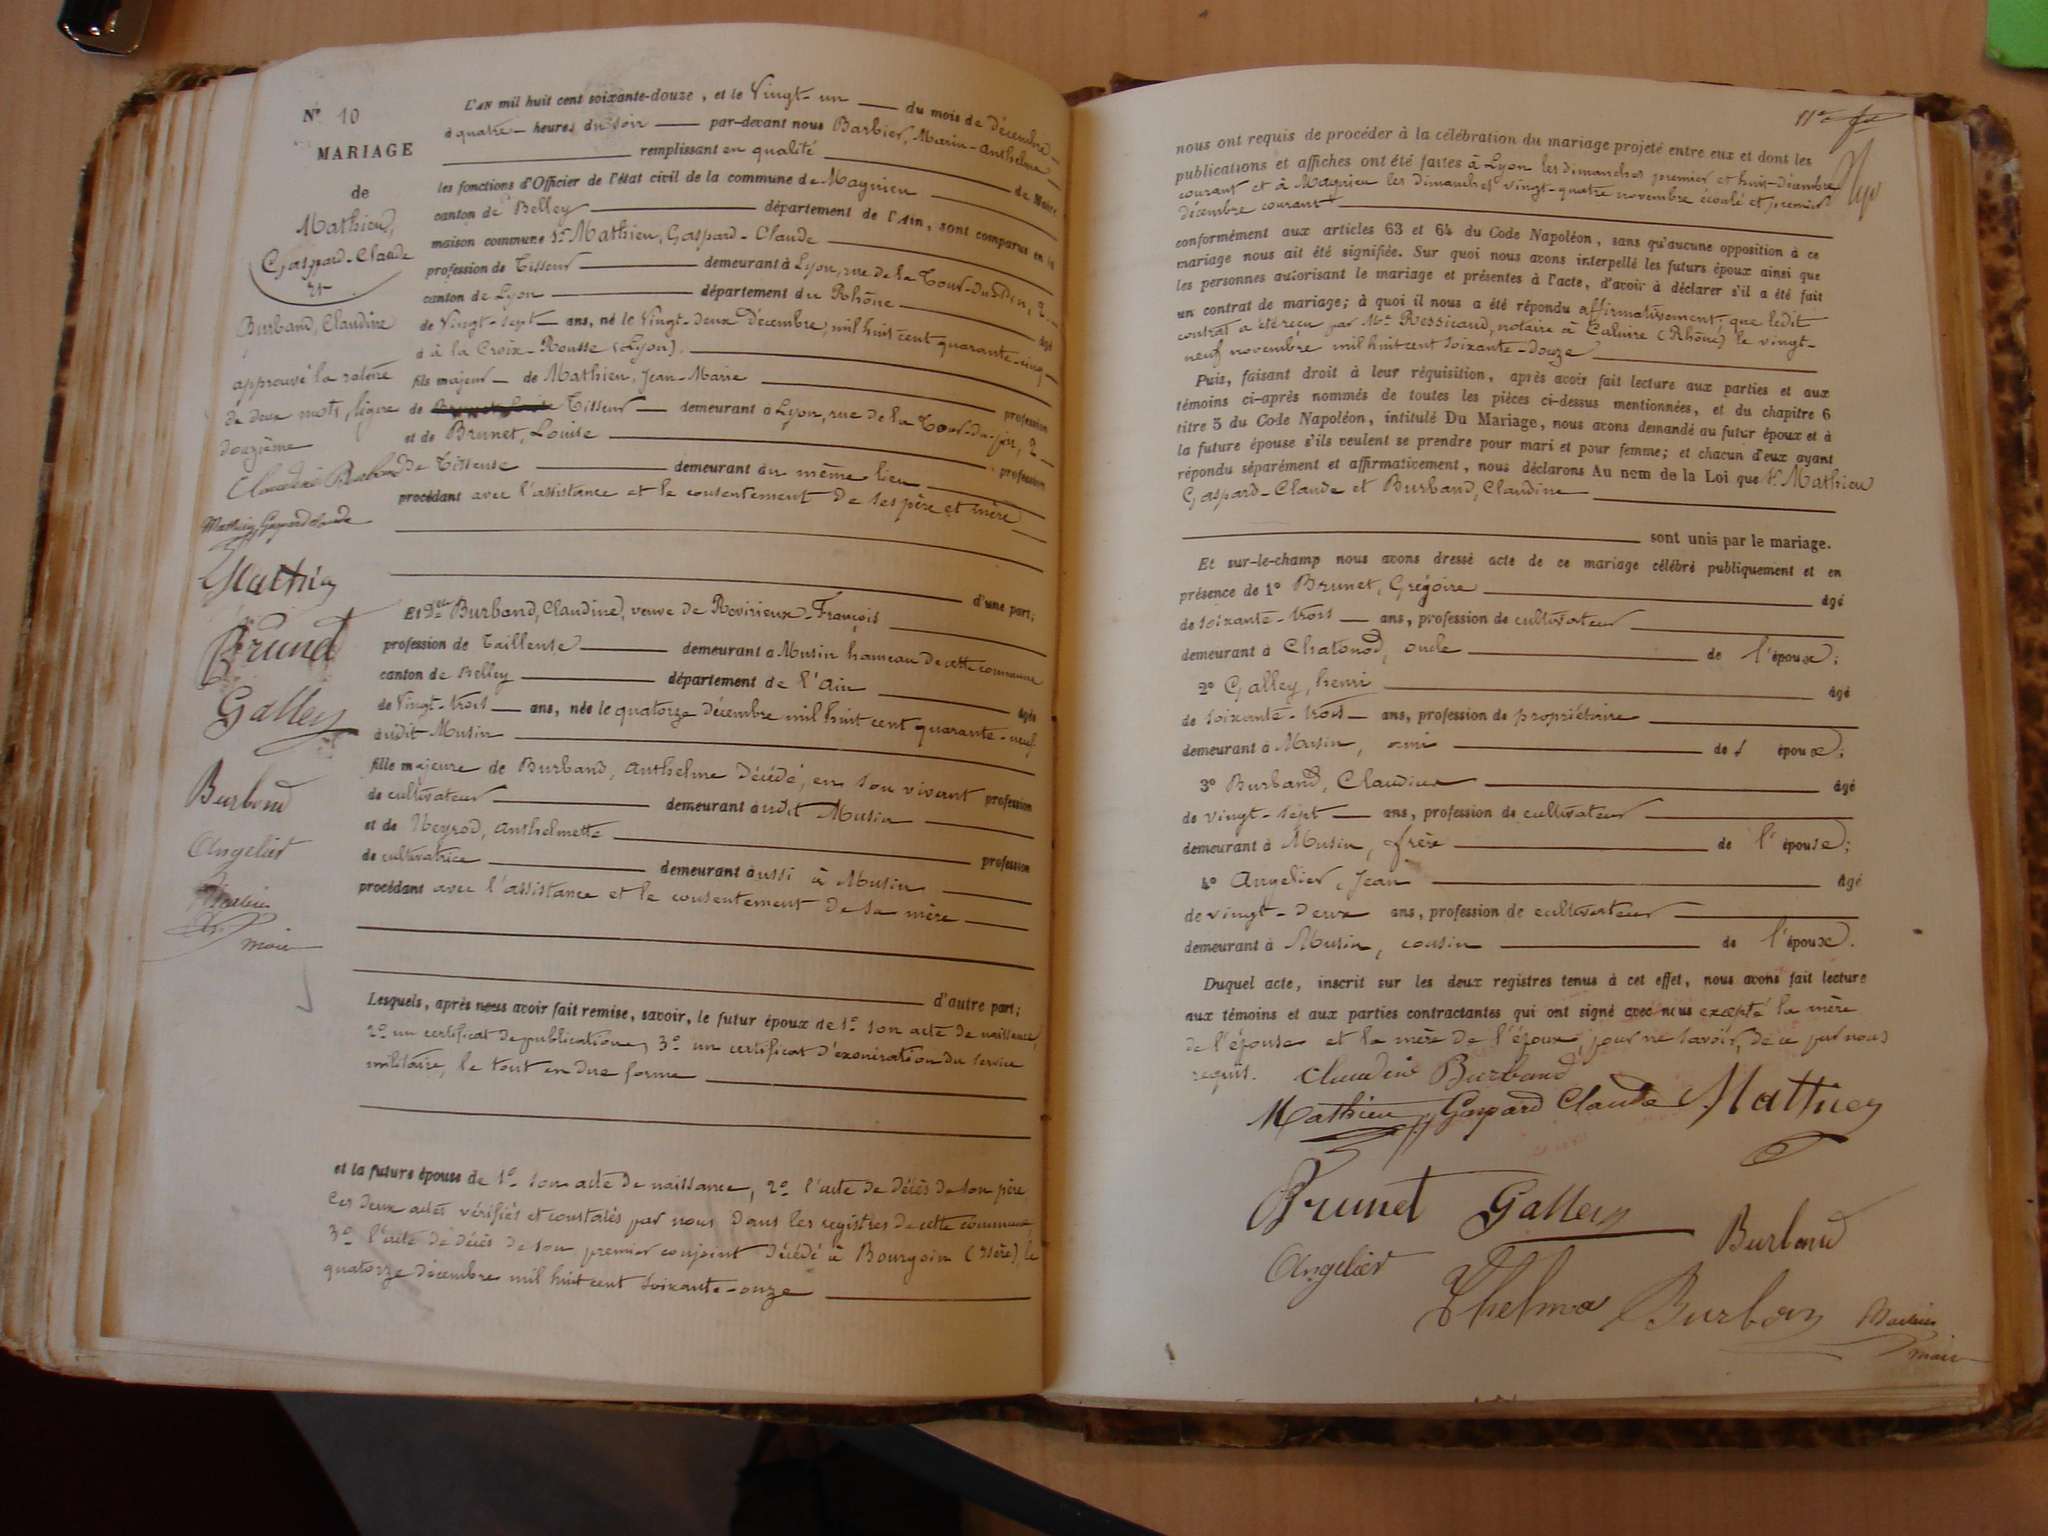 N° 10
MARIAGE
de
Mathieu,
Gaspard-Claude
et
Burband, Claudine
approuvé la rature
de deux mots, ligne
douzième
Claudine Burband
Mathieu Gaspard Claude
Mathieu
Brunet
Galley
Burband
Angelier
Barbier
maire
L'AN mil huit cent soixante-douze, et le Vingt-un du mois de Décembre
à quatre heures du soir par-devant nous Barbier, Marin-Anthelme
remplissant en qualité de Maire
les fonctions d'Officier de l'état civil de la commune de Magnieu
canton de Belley département de l'Ain, sont comparus en la
maison commune 1° Mathieu, Gaspard-Claude
profession de Tisseur demeurant à Lyon, rue de la Tour-du-Pin, 2
canton de Lyon département du Rhône
de Vingt-sept ans, né le Vingt-deux Décembre, mil huit cent quarante-cinq âgé
à la Croix-Rousse (Lyon).
fils majeur de Mathieu, Jean-Marie profession
de Tisseur demeurant à Lyon, rue de la Tour-du-pin, 2
et de Brunet, Louise profession
de Tisseuse demeurant au même lieu
procédant avec l'assistance et le consentement de ses père et mère
d'une part;
Et 2° Burband, Claudine, veuve de Rovirieux-François
profession de Tailleuse demeurant à Musin hameau de cette commune
canton de Belley département de l'Ain âgée
de Vingt-trois ans, née le quatorze Décembre mil huit cent quarante-neuf
audit Musin
fille majeure de Burband, Anthelme Décédé, en son vivant profession
de cultivateur demeurant audit Musin
et de Neyrod, Anthelmette profession
de cultivatrice demeurant aussi à Musin
procédant avec l'assistance et le consentement de sa mère
d'autre part;
Lesquels, après nous avoir fait remise, savoir, le futur époux de 1° son acte de naissance,
2° un certificat de publications, 3° un certificat d'exonération du service
militaire, le tout en due forme
et la future épouse de 1° son acte de naissance, 2° l'acte de décès de son père
Ces deux actes vérifiés et constatés par nous dans les registres de cette commune,
3° l'acte de décès de son premier conjoint décédé à Bourgoin (Isère), le
quatorze décembre mil huit cent soixante-onze
nous ont requis de procéder à la célébration du mariage projeté entre eux et dont les
publications et affiches ont été faites à Lyon les dimanches premier et huit Décembre
courant et à Magnieu les dimanches vingt-quatre novembre écoulé et premier
décembre courant
conformément aux articles 63 et 64 du Code Napoléon, sans qu'aucune opposition à ce
mariage nous ait été signifiée. Sur quoi nous avons interpellé les futurs époux ainsi que
les personnes autorisant le mariage et présentes à l'acte, d'avoir à déclarer s'il a été fait
un contrat de mariage; à quoi il nous a été répondu affirmativement, que ledit
contrat a été reçu par Me Ressicaud, notaire à Caluire (Rhône) le vingt-
neuf novembre mil huit cent soixante-douze
Puis, faisant droit à leur réquisition, après avoir fait lecture aux parties et aux
témoins ci-après nommés de toutes les pièces ci-dessus mentionnées, et du chapitre 6
titre 5 du Code Napoléon, intitulé Du Mariage, nous avons demandé au futur époux et à
la future épouse s'ils veulent se prendre pour mari et pour femme; et chacun d'eux ayant
répondu séparément et affirmativement, nous déclarons Au nom de la Loi que Mathieu
Gaspard-Claude et Burband, Claudine
sont unis par le mariage.
Et sur-le-champ nous avons dressé acte de ce mariage célébré publiquement et en
présence de 1° Brunet, Grégoire âgé
de soixante-trois ans, profession de cultivateur
demeurant à Chatonod, oncle de l'époux;
2° Galley, henri âgé
de soixante-trois ans, profession de propriétaire
demeurant à Musin, ami de l'époux;
3° Burband, Claudius âgé
de vingt-sept ans, profession de cultivateur
demeurant à Musin, frère de l'épouse;
4° Angelier, Jean âgé
de vingt-deux ans, profession de cultivateur
demeurant à Musin, cousin de l'époux.
Duquel acte, inscrit sur les deux registres tenus à cet effet, nous avons fait lecture
aux témoins et aux parties contractantes qui ont signé avec nous excepté la mère
de l'épouse et la mère de l'époux, pour ne savoir, de ce par nous
requis. Claudine Burband
Mathieu Gaspard Claude Mathieu
Brunet Galley Burband
Angelier Thelma Burban Barbier
maire